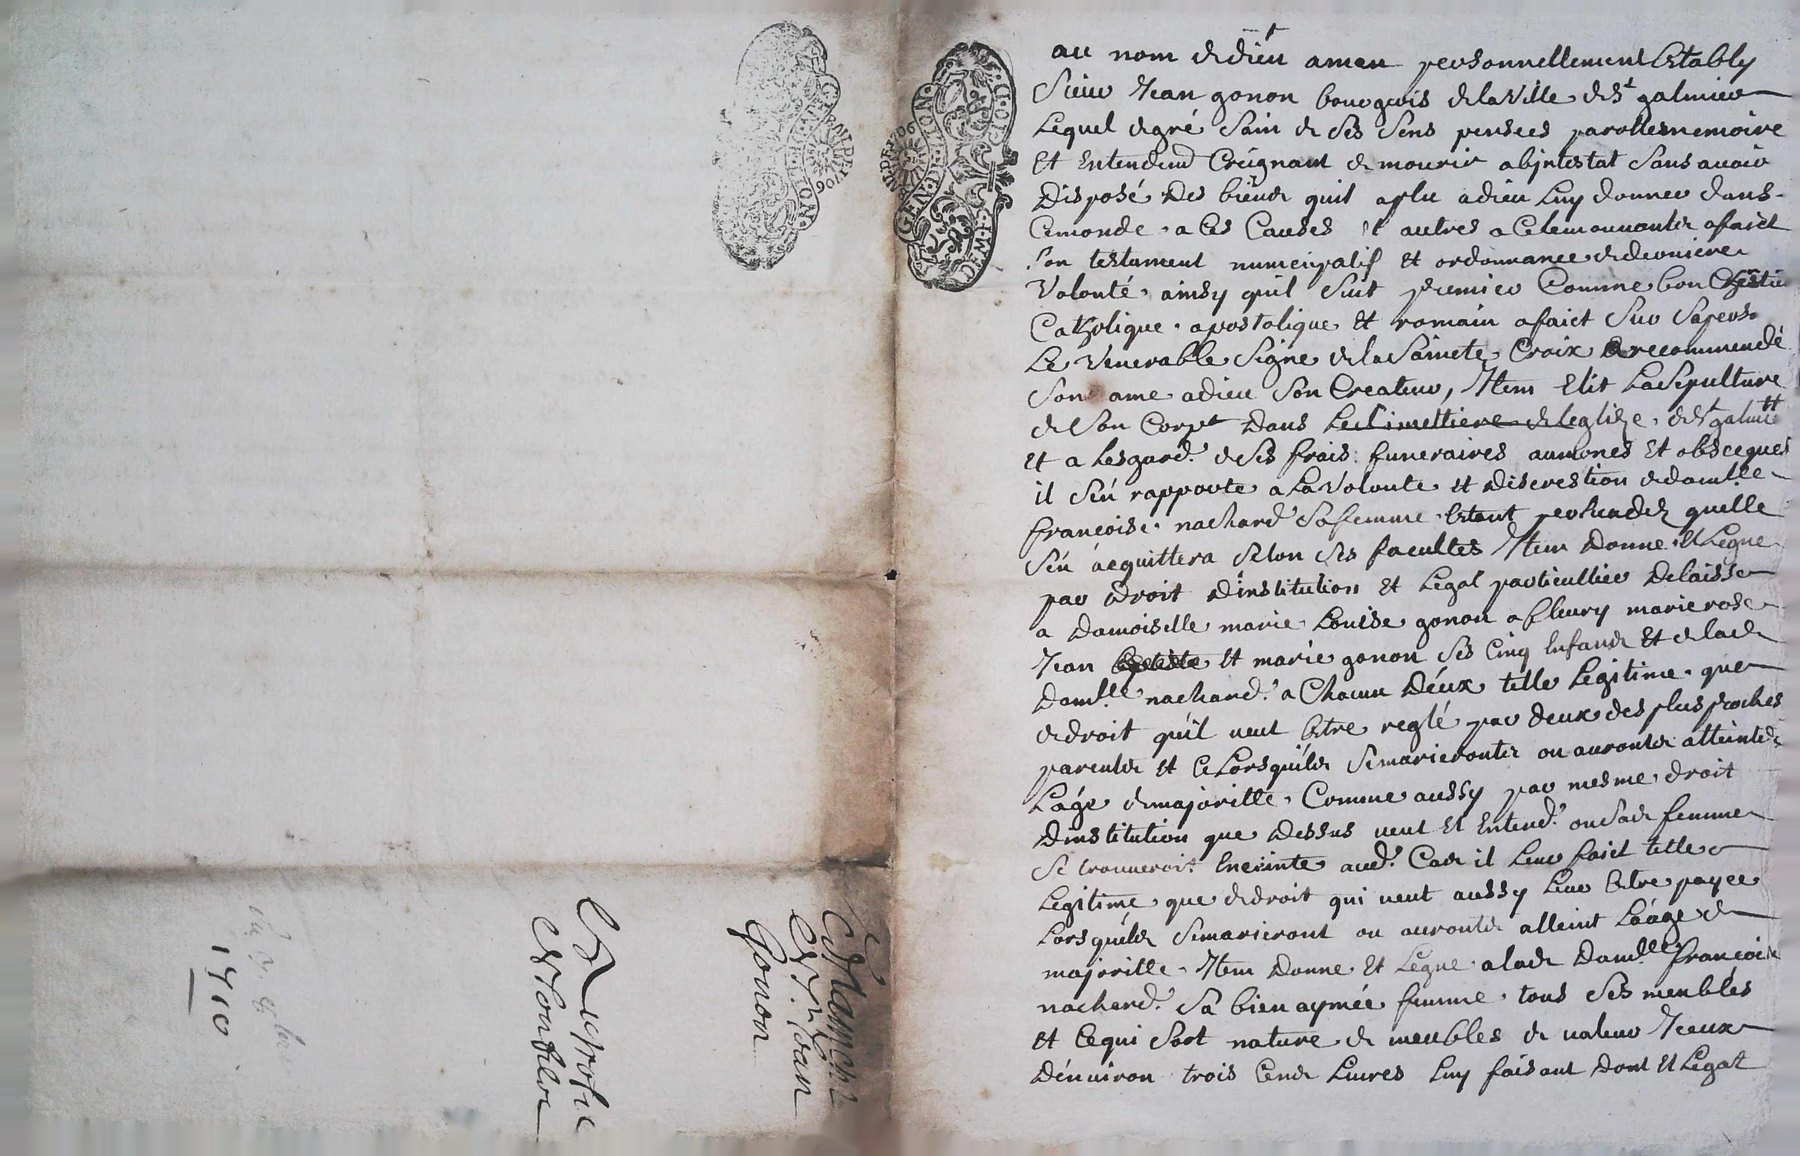 au nom de dieu amen personnellement Estably
Sieur Jean gonon bourgeois de la Ville de St galmier
Lequel de gré Sain de Ses Sens pensees parolles memoire
Et Entendemt Creignant de mourir abjntestat Sans auoir
Disposé Des biens quil a plu a dieu Luy donner dans
Ce monde a Ces Causes Et autres a Ce Le mouuants a faict
Son testament nuncupatif Et ordonnance de derniere
Volonté ainsy quil Suit premier Comme bon Chrestien
Catholique apostolique Et romain a faict Sur Sa pers.
Le Venerable Signe de la Saincte Croix recommendé
Son ame a dieu Son Createur, Item Elit La Sepulture
de Son Corps Dans Le Cimettiere de Leglize de St galmier
Et a Lesgard de Ses frais funeraires aumones Et obseques
il Sen rapporte a La Volonte Et Discrestion de damlle
francoise nachard Sa femme Estant persuadé quelle
Sen acquittera Selon Ses facultes Item Donne Et Legue
par Droit Dinstitution Et Legat particullier Delaisse
a Damoiselle marie Louise gonon a fleury marie rose
Jean Et marie gonon Ses Cinq Enfands Et de lade
Damlle nachard a Chacun Deux telle Legitime que
de droit quil ueut Estre reglé par deux des plus proches
parents Et Ce Lorsquils Se marieronts ou auronts atteints
Lâge de majoritte Comme aussy par mesme droit
Dinstitution que Dessus ueut Et Entend ou Sade femme
Se trouueroit Enceinte aud. Cas il Leur faict telle
Legitime que de droit qui ueut aussy Leur Estre payee
Lorsquils Se marieront ou auronts atteint Laage de
majoritte Item Donne Et Legue a lade Damlle francoise
nachard Sa bien aymée femme tous Ses meubles
Et Ce qui Sort nature de meubles de ualeur Jceux
Denuiron trois Cens Liures Luy faisant Dont Et Legat
GEN·DE·LYON
Gonon
1710